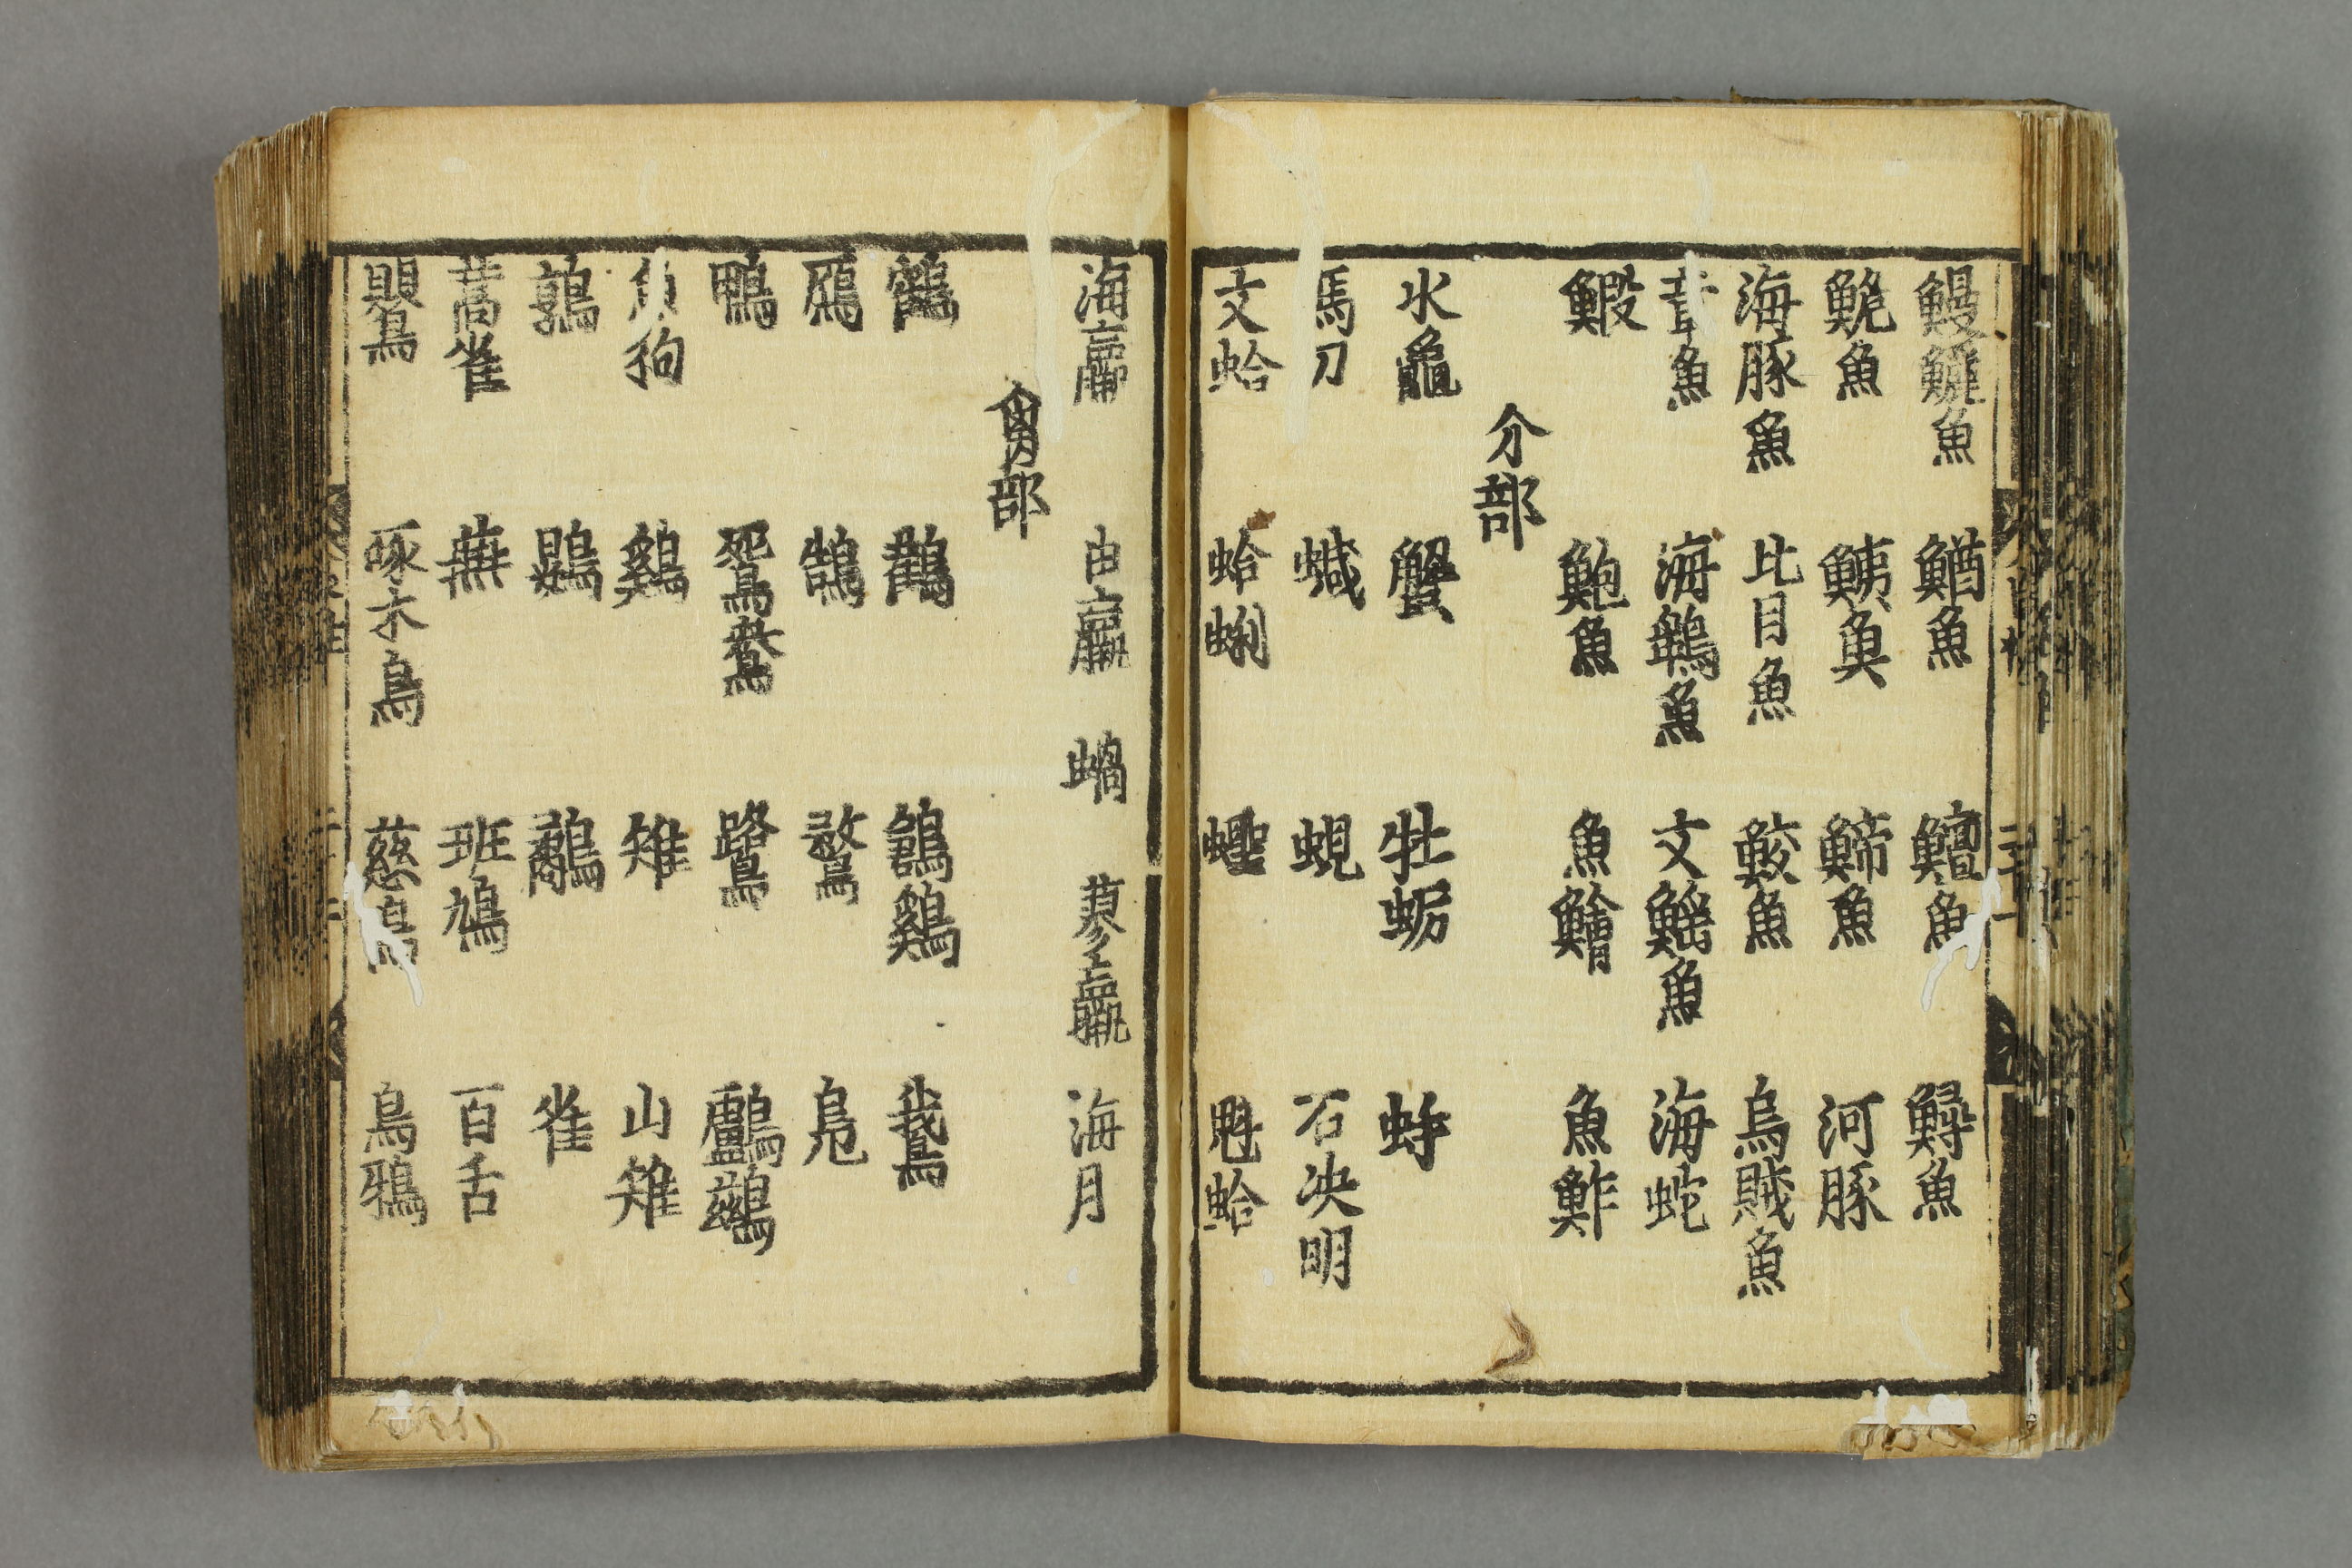 鰻鱺魚 鰌魚 鱣魚 鱘魚
鮠魚 鮧魚 鯑魚 河豚
海豚魚 比目魚 鮫魚 烏賊魚
章魚 海鷂魚 文鰩魚 海蛇
鰕 鮑魚 魚鱠 魚鮓
介部
水龜 蟹 牡蛎 蚌
馬刀 蝛 蜆 石决明
文蛤 蛤蜊 蟶 魁蛤
海蠃 田蠃 蝸 蓼蠃 海月
禽部
鶴 鸛 鶬鷄 鵞
鴈 鵠 鶩 鳧
鴨 鴛鴦 鷺 鸕鷀
魚狗 鷄 雉 山雉
鶉 鷃 鷸 雀
蒿雀 班鳩 百舌
啄木鳥 慈烏 烏鴉